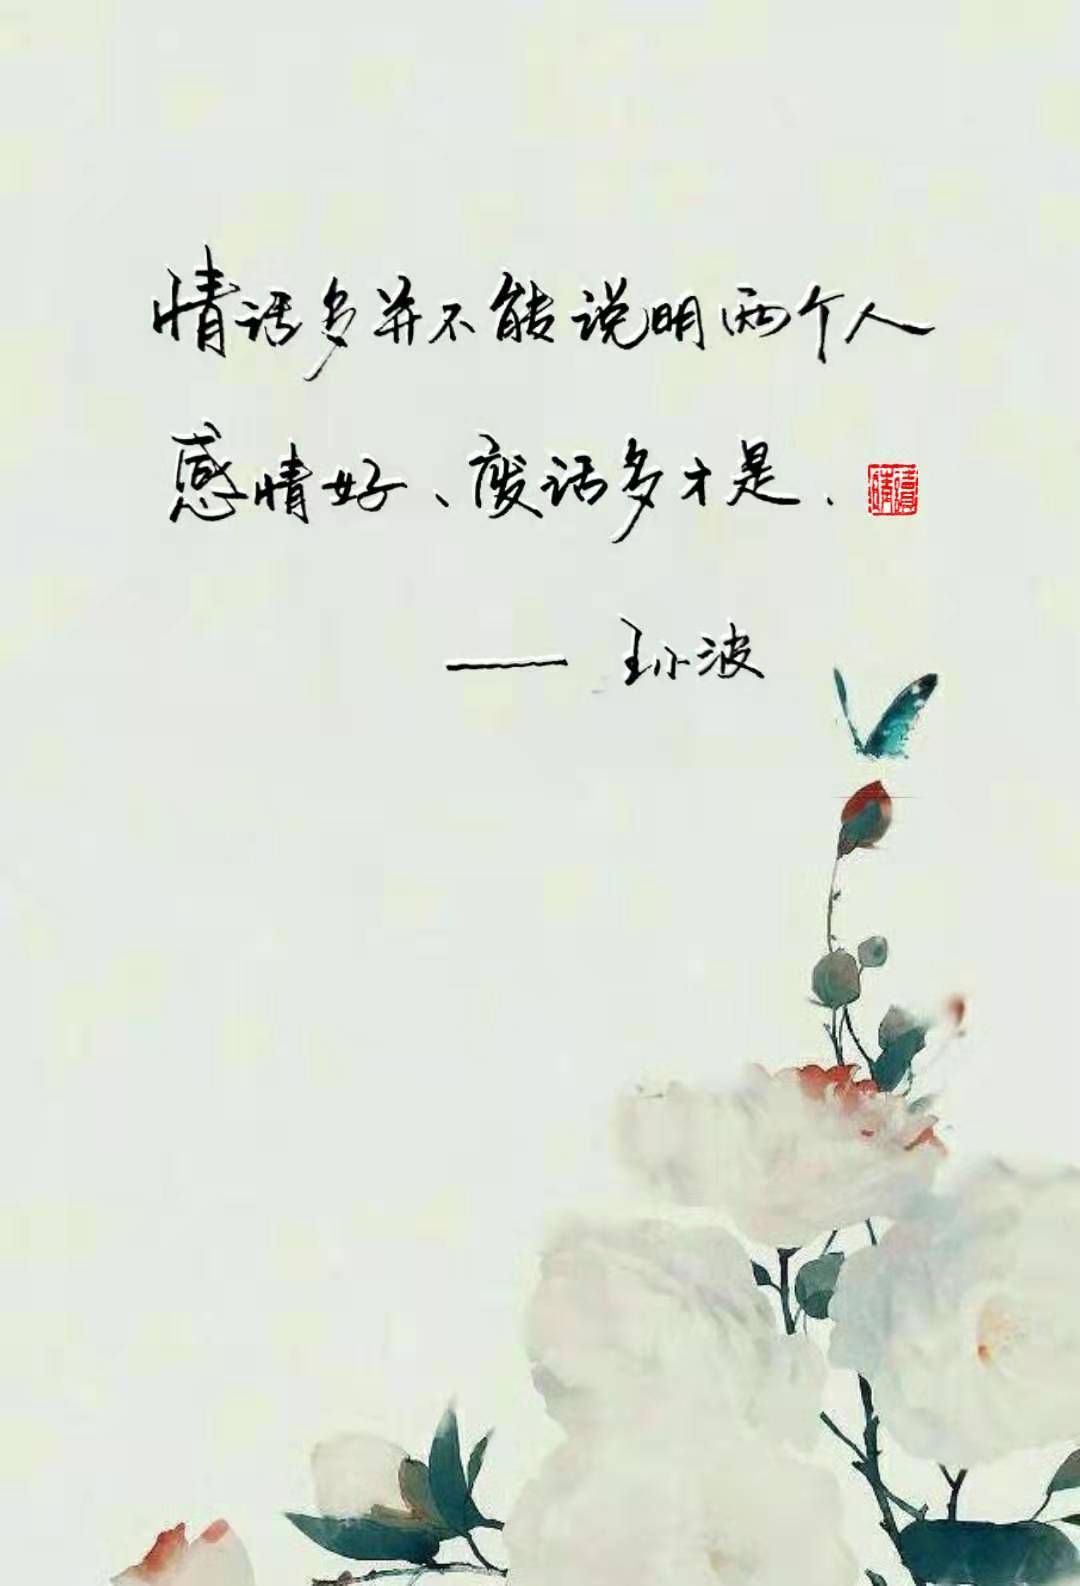 情话多并不能说明两个人
感情好、废话多才是.
—— 王小波